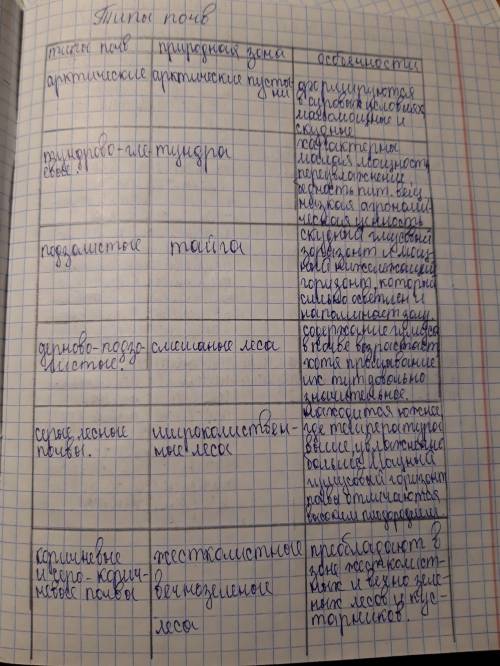 Типы почв
типы почв природная зона особенности
арктические арктические пустыни
формируются
в суровых условиях,
маломощные и
скудные
тундрово-глеевые. тундра
характерны
малая мощность
переувлажнение,
бедность пит. вещ
низкая агрономи-
ческая ценность
подзолистые тайга
скудный гумусовый
горизонт и мощ-
ный нижележащий
горизонт, которой
сильно осветлен и
напоминает золу.
дерново-подзо-
листые. смешаные леса
содержание гумуса
в почве возрастает
хотя промывание
их тут довольно
значительное.
серые лесные
почвы.
широколиствен-
ные леса
находится южнее
где температура
выше, увлажнение
больше. Мощный
гумусовый горизонт
почвы отличаются
высоким плодородием
коричневые
и серо-корич-
невые почвы
жестколистные
вечнозеленые
леса
преобладают в
зоне жестколист-
ных и вечно зеле-
ных лесов и кус-
тарников.